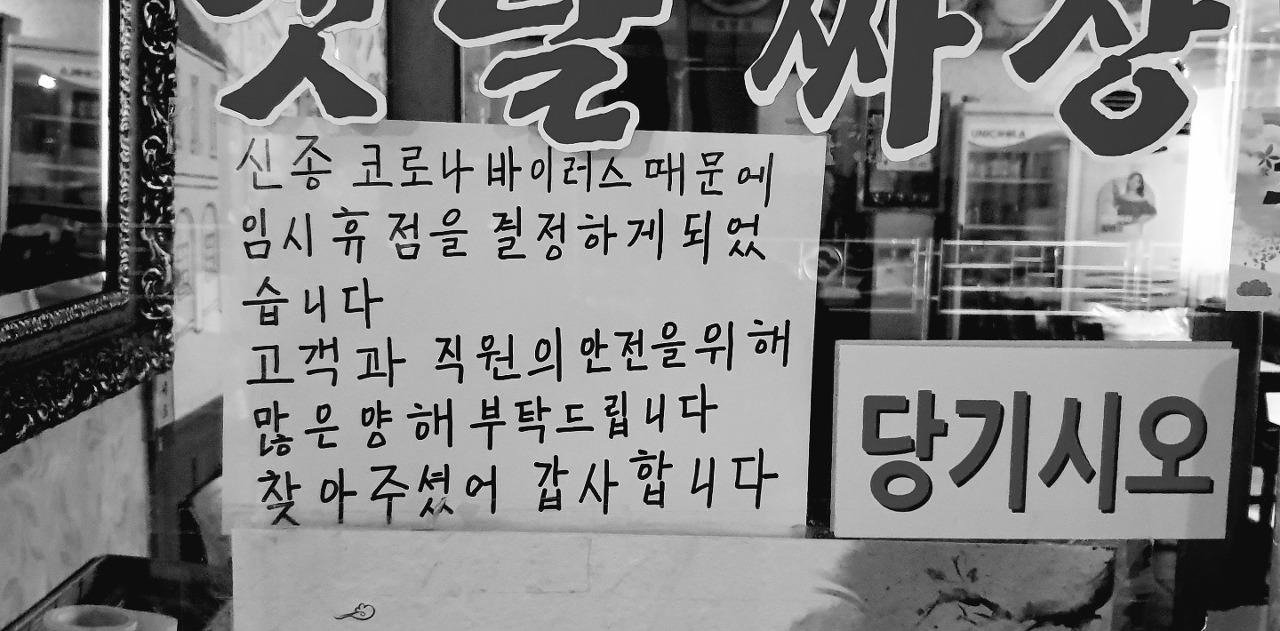 옛날짜장
신종 코로나 바이러스 때문에
임시휴점을 결정하게 되었
습니다
고객과 직원의 안전을위해
많은 양해 부탁드립니다
찾아주셨어 갑사합니다
당기시오